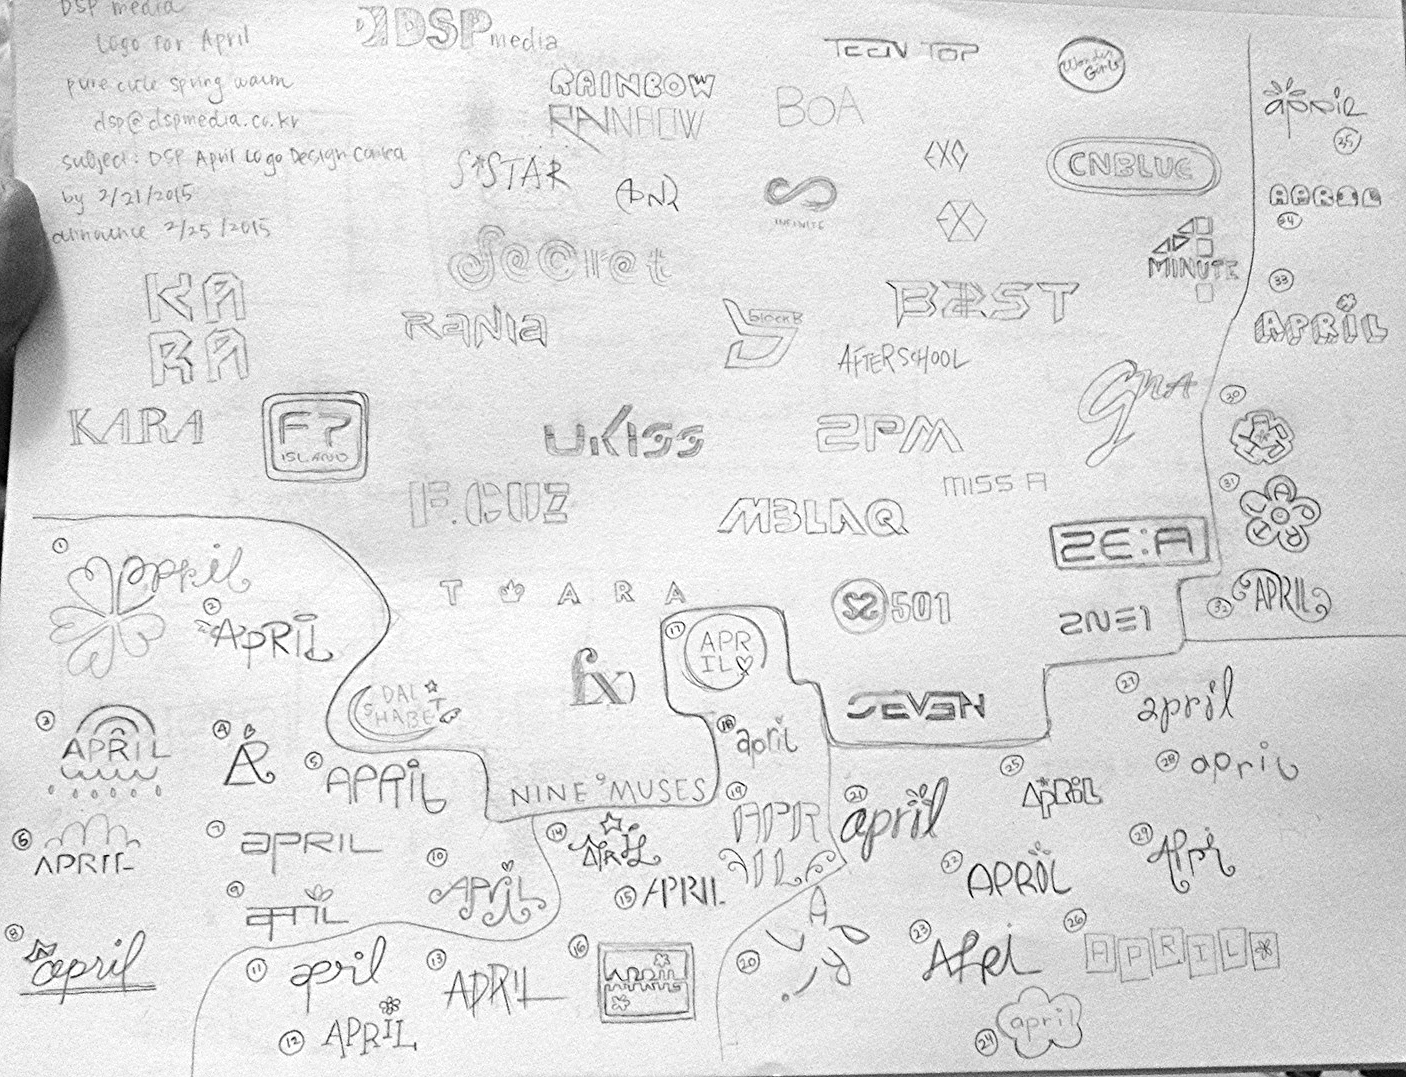 DSP media
Logo for April
pure cute spring warm
dsp@dspmedia.co.kr
subject: DSP April Logo Design Contest
by 2/21/2015
announce 2/25/2015
DSP media
TEEN TOP
Wonder Girls
RAINBOW
RAINBOW
BoA
SISTAR
EXO
CNBLUE
INFINITE
4
MINUTE
Secret
KA
RA
RANIA
block B
B2ST
AFTERSCHOOL
GNA
KARA
FT
ISLAND
UKISS
2PM
MISS A
F.CUZ
MBLAQ
ZE:A
T ARA
SS 501
2NE1
DAL
SHABET
f(x)
SEVEN
NINE MUSES
1 april
2 APRIL
3 APRIL
4 A
5 APRIL
6 APRIL
7 APRIL
8 april
9 april
10 APRIL
11 april
12 APRIL
13 APRIL
14 APRIL
15 APRIL
16 APRIL
17 APR
IL
18 april
19 APR
IL
20 A
21 april
22 APRIL
23 April
24 april
25 APRIL
26 APRIL
27 april
28 april
29 April
30
31 APRIL
32 APRIL
33 APRIL
34 APRIL
35 april